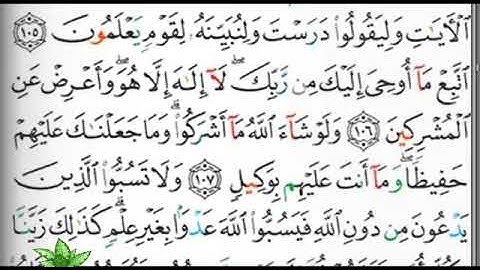 ٱلۡأٓيَٰتِ وَلِيَقُولُواْ دَرَسۡتَ وَلِنُبَيِّنَهُۥ لِقَوۡمٖ يَعۡلَمُونَ ١٠٥
ٱتَّبِعۡ مَآ أُوحِيَ إِلَيۡكَ مِن رَّبِّكَۖ لَآ إِلَٰهَ إِلَّا هُوَۖ وَأَعۡرِضۡ عَنِ
ٱلۡمُشۡرِكِينَ ١٠٦ وَلَوۡ شَآءَ ٱللَّهُ مَآ أَشۡرَكُواْۗ وَمَا جَعَلۡنَٰكَ عَلَيۡهِمۡ
حَفِيظٗاۖ وَمَآ أَنتَ عَلَيۡهِم بِوَكِيلٖ ١٠٧ وَلَا تَسُبُّواْ ٱلَّذِينَ
يَدۡعُونَ مِن دُونِ ٱللَّهِ فَيَسُبُّواْ ٱللَّهَ عَدۡوَۢا بِغَيۡرِ عِلۡمٖۗ كَذَٰلِكَ زَيَّنَّا